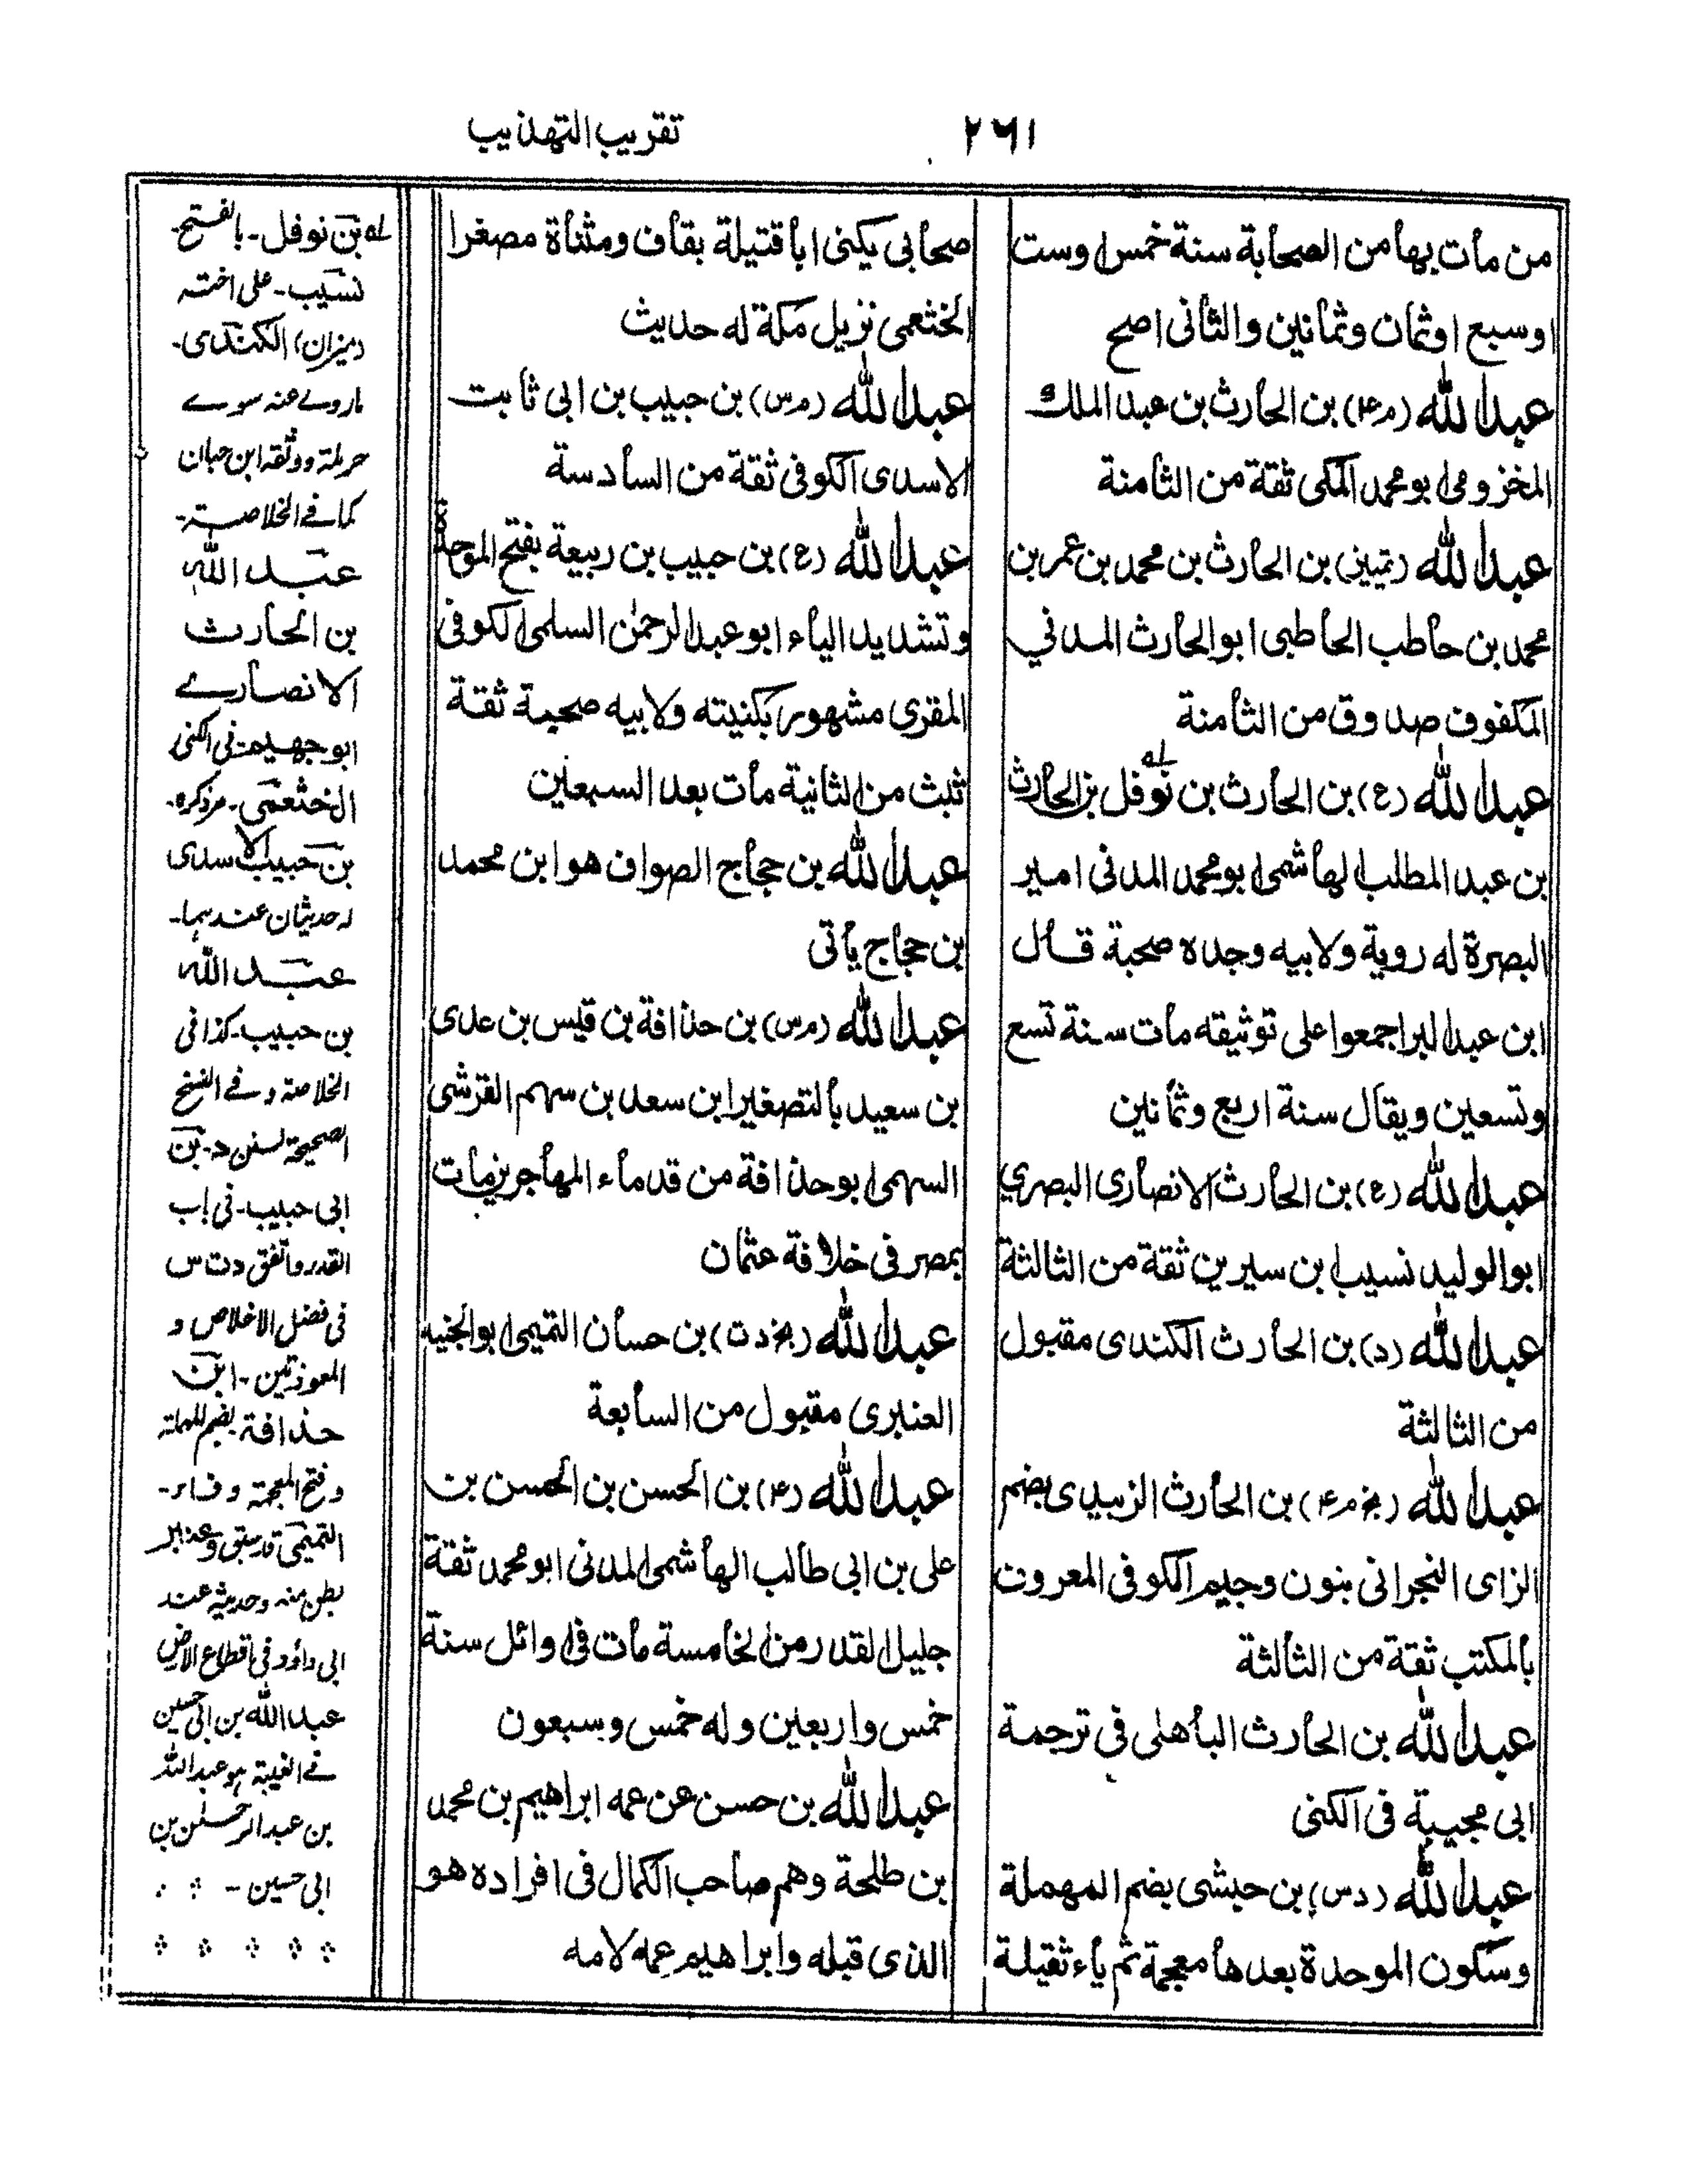 ٢٦١
تقريب التهذيب
من مات بها من الصحابة سنة خمس او ست
او سبع او ثمان وثمانين والثانى اصح
عبد الله (م۴) بن الحارث بن عبد الملك
المخزومى ابو محمد المكى ثقة من الثامنة
عبد الله (تمييز) بن الحارث بن محمد بن عمر بن
محمد بن حاطب الحاطبى ابو الحارث المدني
المكفوف صدوق من الثامنة
عبد الله (ع) بن الحارث بن نوفل بن الحارث
بن عبد المطلب الهاشمى ابو محمد المدنى امير
البصرة له روية ولابيه وجده صحبة قال
ابن عبد البر اجمعوا على توثيقه مات سنة تسع
وتسعين ويقال سنة اربع وثمانين
عبد الله (ع) بن الحارث الانصارى البصري
ابو الوليد نسيب ابن سيرين ثقة من الثالثة
عبد الله (د) بن الحارث الكندى مقبول
من الثالثة
عبد الله (بخ م۴) بن الحارث الزبيدى بضم
الزاى النجرانى بنون وجيم الكوفى المعروف
بالمكتب ثقة من الثالثة
عبد الله بن الحارث الباهلى فى ترجمة
ابى مجيبة فى الكنى
عبد الله (دس) بن حبشى بضم المهملة
وسكون الموحدة بعدها معجمة ثم ياء ثقيلة
صحابى يكنى ابا قتيلة بقاف ومثناة مصغرا
الخثعمى نزيل مكة له حديث
عبد الله (م س) بن حبيب بن ابى ثابت
الاسدى الكوفى ثقة من السادسة
عبد الله (ع) بن حبيب بن ربيعة بفتح الموحدة
وتشديد الياء ابو عبد الرحمن السلمى الكوفى
المقرى مشهور بكنيته ولابيه صحبة ثقة
ثبت من الثانية مات بعد السبعين
عبد الله بن حجاج الصواف هو ابن محمد
بن حجاج يأتى
عبد الله (م س) بن حذافة بن قيس بن عدى
بن سعيد بالتصغير ابن سعد بن سهم القرشى
السهمى ابو حذافة من قدماء المهاجرين مات
بمصر فى خلافة عثمان
عبد الله (بخ د ت) بن حسان التميمى ابو الجنيد
العنبرى مقبول من السابعة
عبد الله (۴) بن الحسن بن الحسن بن
على بن ابى طالب الهاشمى المدنى ابو محمد ثقة
جليل القدر من الخامسة مات فى اوائل سنة
خمس واربعين وله خمس وسبعون
عبد الله بن حسن عن عمه ابراهيم بن محمد
بن طلحة وهم صاحب الكمال فى افراده هو
الذى قبله وابراهيم عمه لامه
له بن نوفل - بالفتح -
نسيب - على اخته
(ميزان) الكندى -
ما روى عنه سوى
حرملة ووثقه ابن حبان
كما فى الخلاصة -
عبد الله
بن الحارث
الانصارى
ابو جهيم - فى الكنى
الخثعمى - مر ذكره -
بن حبيب الاسدى
له حديثان عندهما -
عبد الله
بن حبيب - كذا فى
الخلاصة وفى النسخ
الصحيحة لسنن د - بن
ابى حبيب - فى باب
القدر واتفق د ت س
فى فضل الاخلاص و
المعوذتين - ابن
حذافة بضم المهملة
وفتح المعجمة وفاء -
التميمى قد سبق وعنبر
بطن منه وحديثه عند
ابى داؤد فى اقطاع الارض
عبد الله بن ابى حسين
فى الغيبة هو عبد الله
بن عبد الرحمن بن
ابى حسين -